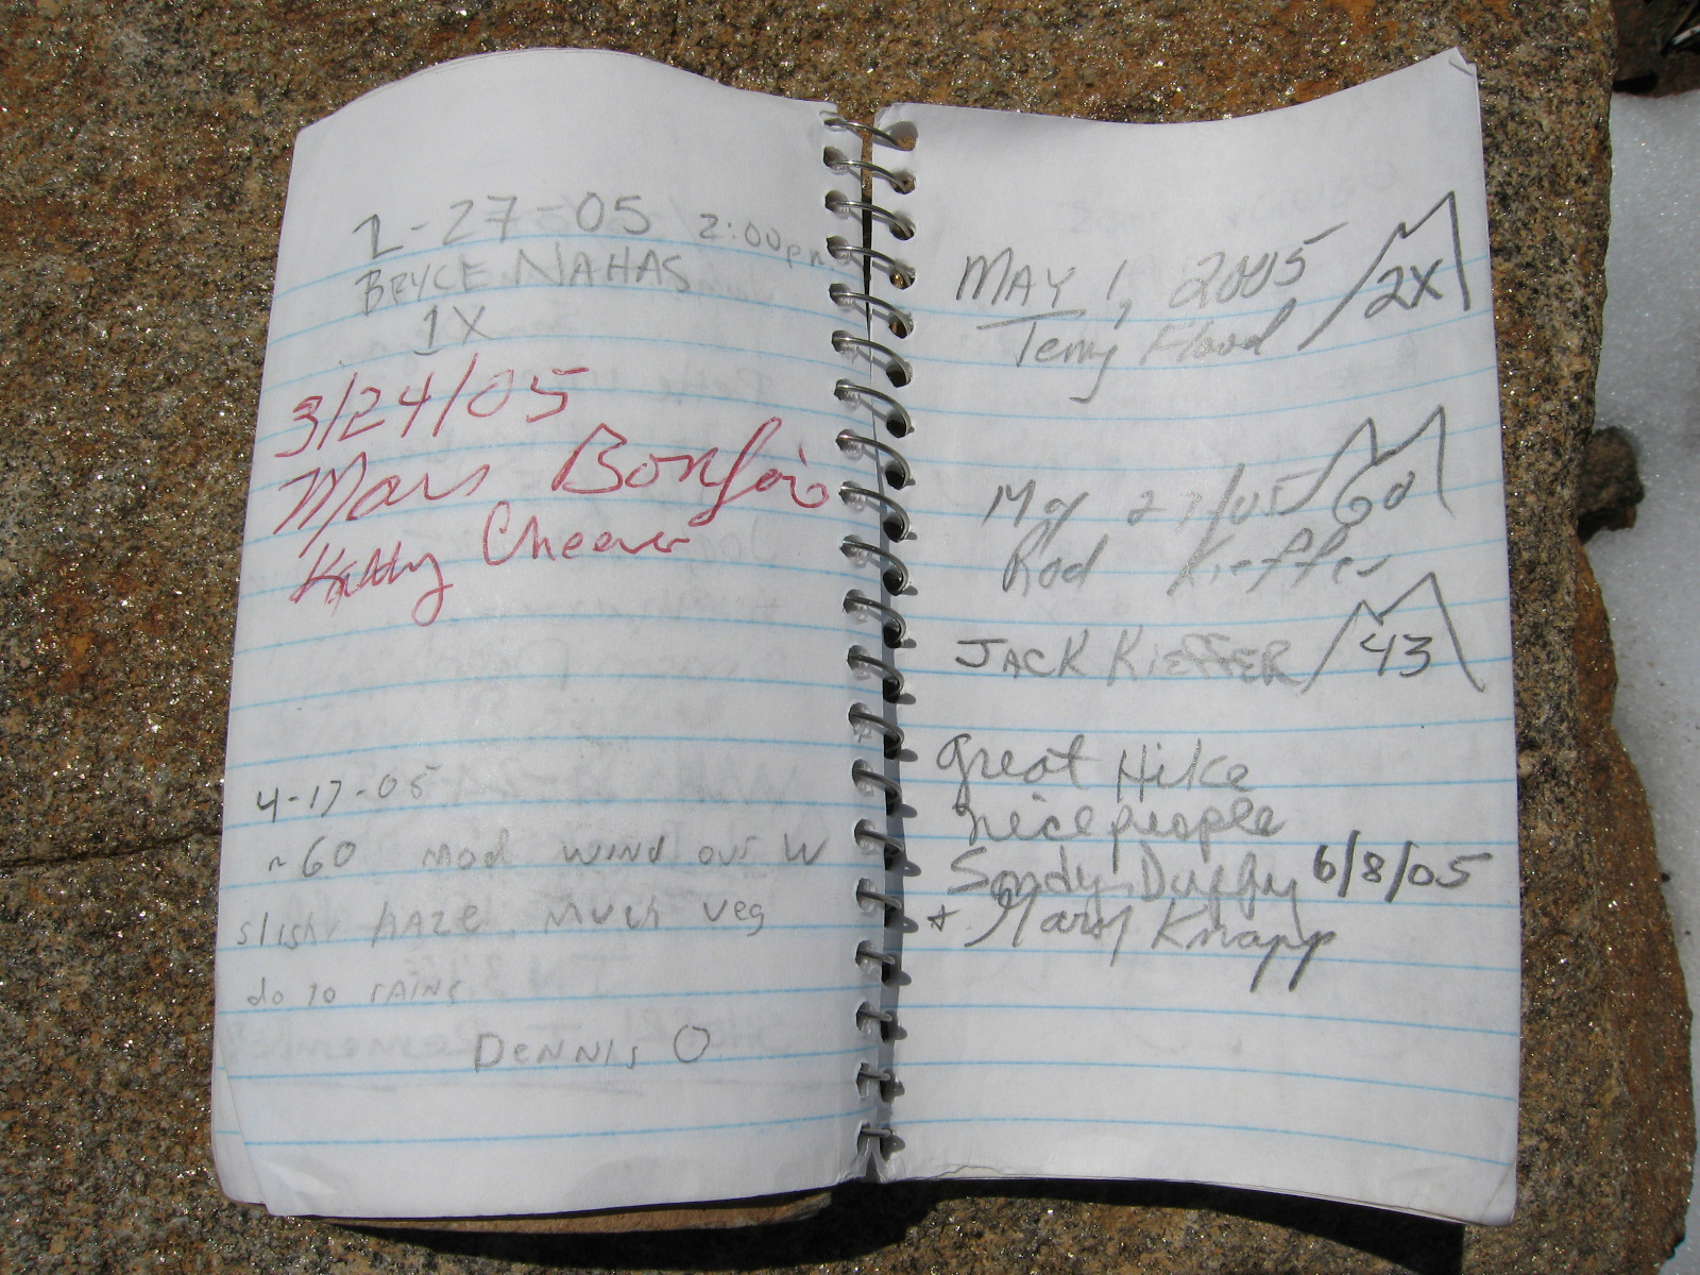 1-27-05 2:00pm
BRYCE NAHAS
1X
3/24/05
Mars Bonfire
Kathy Cheever
4-17-05
~60 mod wind out W
slight haze, much veg
do to rains
Dennis O
MAY 1, 2005 2X
Terry Flood
May 27/05 60
Rod Kieffer
JACK KIEFFER 43
Great Hike
nice people
Sandy Duffy 6/8/05
+ Mary Knapp